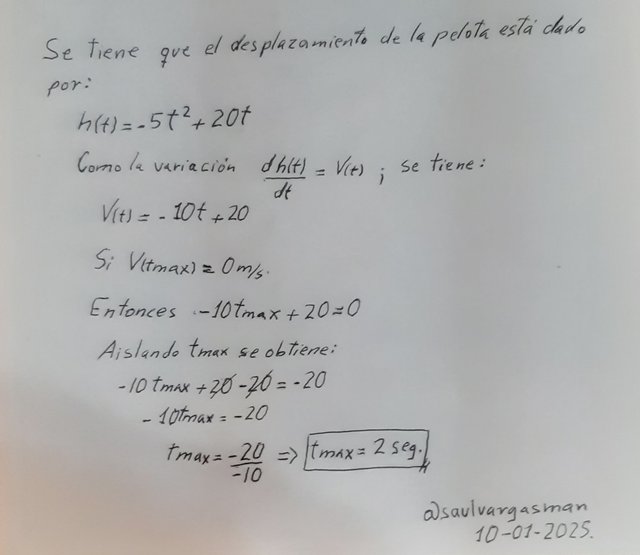 Se tiene que el desplazamiento de la pelota está dado
por:
h(t) = -5t² + 20t
Como la variación dh(t)/dt = V(t) ; se tiene:
V(t) = -10t + 20
Si V(tmax) = 0 m/s.
Entonces -10tmax + 20 = 0
Aislando tmax se obtiene:
-10 tmax + 20 - 20 = -20
-10tmax = -20
tmax = -20/-10 => tmax = 2 seg.
@saulvargasman
10-01-2025.